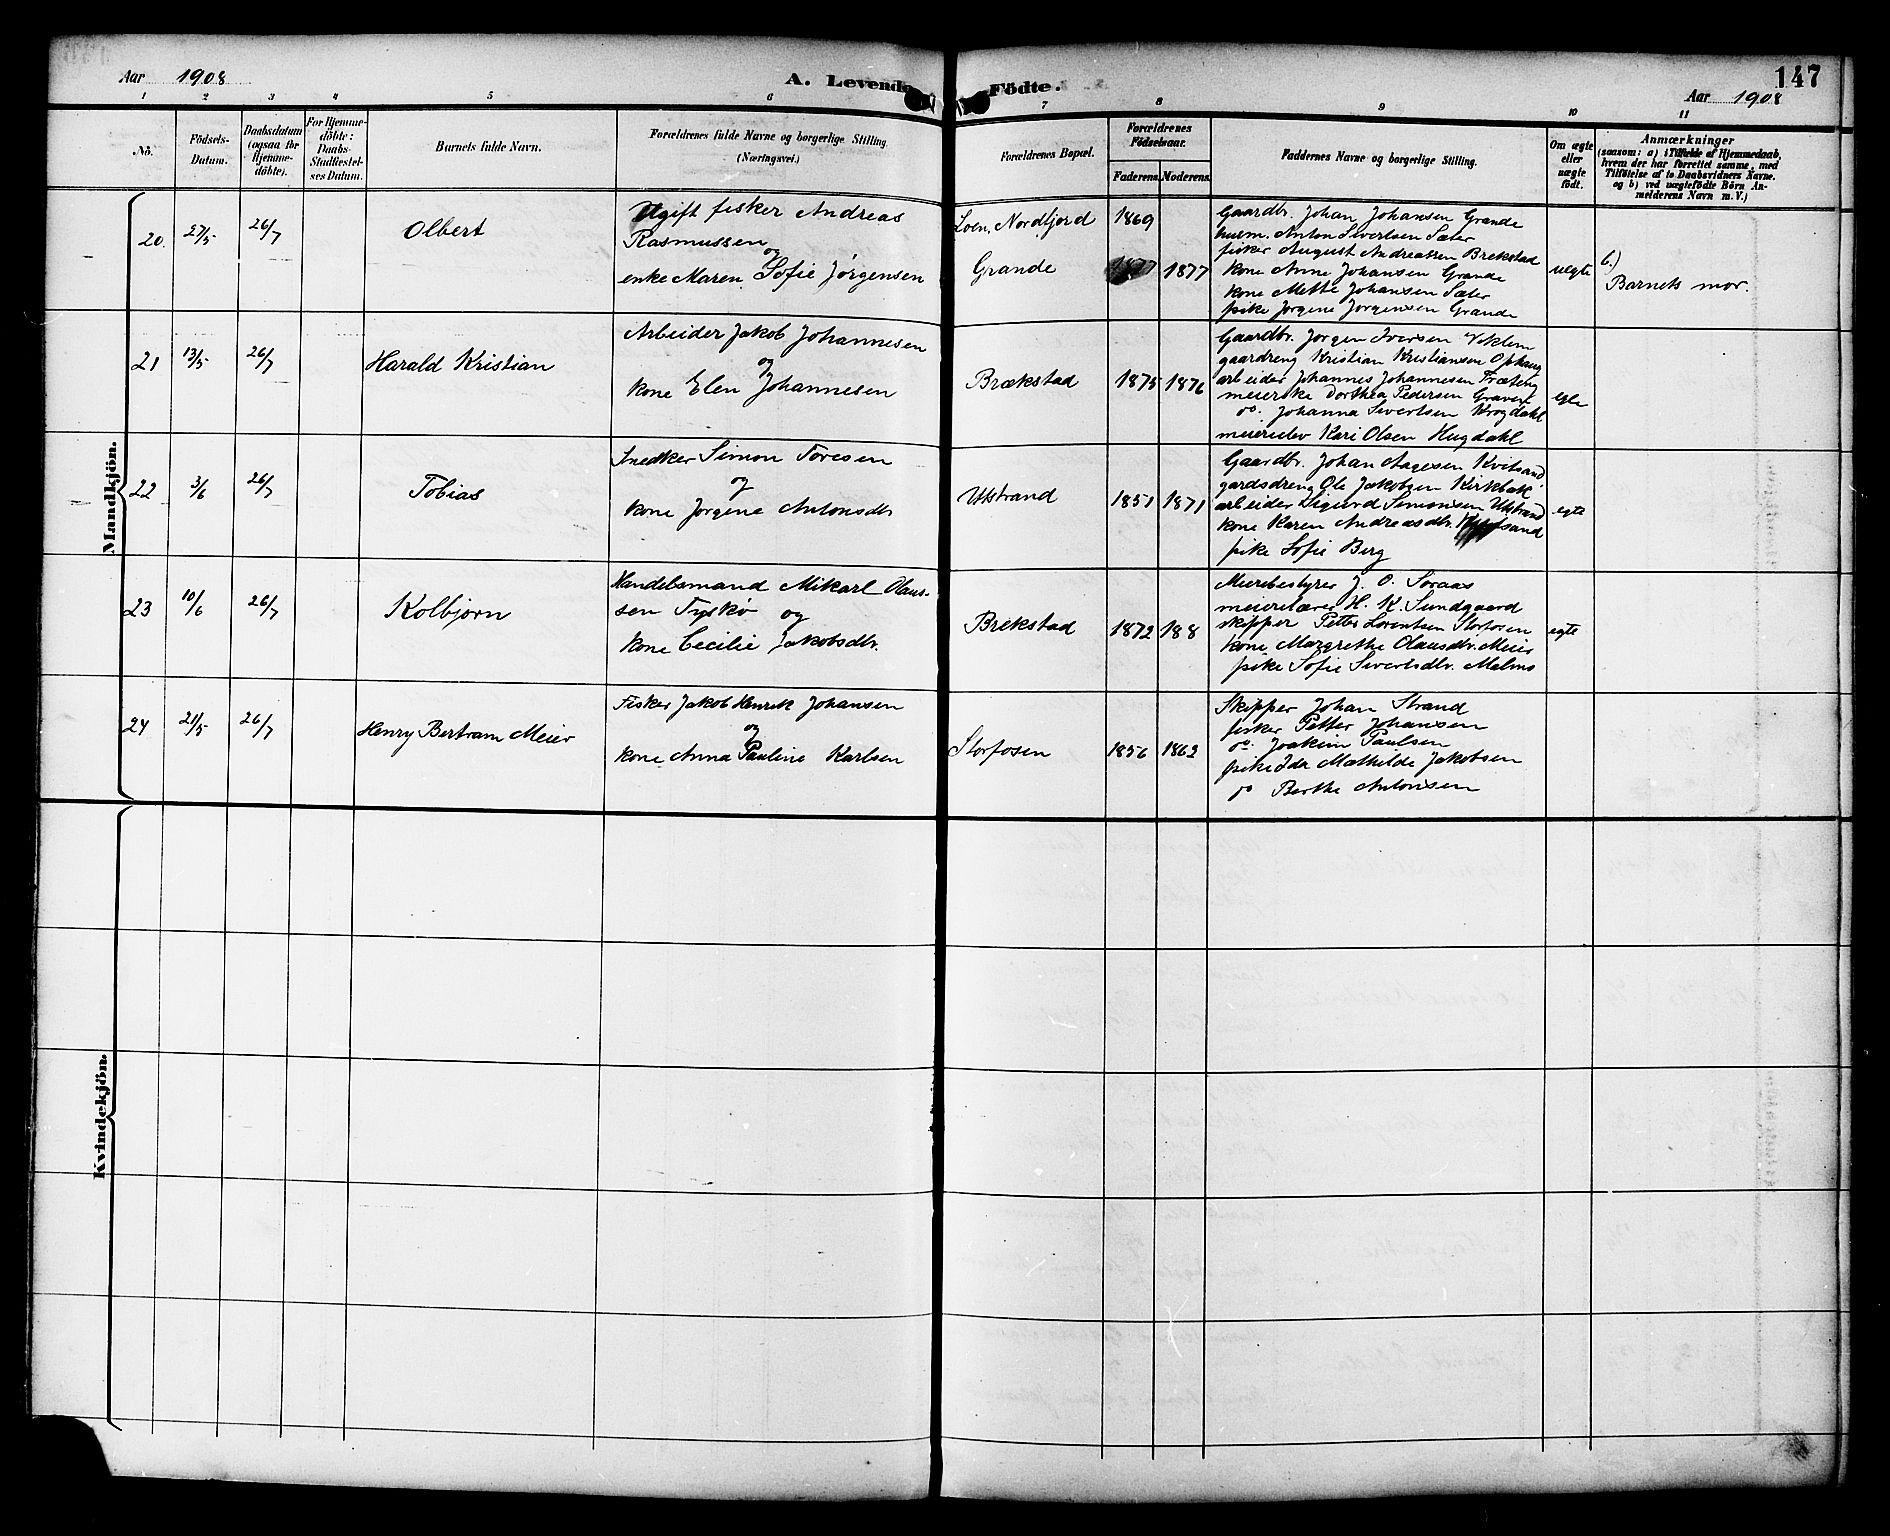 Aar 1908
A. Levende Födte.
147
Aar 1908
1 2 3 4 5 6 7 8 9 10 11
No.
Födsels-
Datum.
Daabsdatum
(ogsaa for
Hjemme-
döbte).
For Hjemme-
döbte:
Daabs-
Stadfæstel-
ses Datum.
Barnets fulde Navn.
Forældrenes fulde Navne og borgerlige Stilling
(Næringsvei.)
Forældrenes Bopæl.
Forældrenes
Födselsaar.
Faderens. Moderens.
Faddernes Navne og borgerlige Stilling.
Om ægte
eller
uægte
födt.
Anmærkninger
(saasom: a) i Tilfælde af Hjemmedaab,
hvem der har forrettet samme, med
Tilföielse af to Daabsvidners Navne.
og b) ved uægtefödte Börn An-
melderens Navn m. V.)
Mandkjön.
20. 27/5 26/7
Olbert
Ugift fisker Andreas
Rasmussen
og
enke Maren Sofie Jørgensen
Loen, Nordfjord
Grande
1869
1877 1877
Gaardbr. Johan Johansen Grande
husm. Anton Sivertsen Sæter
fisker August Andreassen Brekstad
kone Anne Johansen Grande
kone Mette Johansen Sæter
pike Jørgine Jørgensen Grande
uegte
b.)
Barnets mor.
21 13/5 26/7
Harald Kristian
Arbeider Jakob Johannesen
og
kone Elen Johannesen
Brækstad
1875 1876
Gaardbr. Jørgen Iversen Veklem
gaardreng Kristian Kristiansen Ophaug
arbeider Johannes Johannesen Træteng
meierske Dorthea Pedersen
do. Johanna Sivertsen Krogdahl
meierielev Kari Olsen Hugdahl
egte
22 3/6 26/7
Tobias
Snedker Simon Toresen
og
kone Jørgine Antonsdtr.
Utstrand
1851 1871
Gaardbr. Johan Aagesen Kvitsand
gardsdreng Ole Jakobsen Kirkbak
arbeider Sigurd Simonsen Utstrand
kone Karen Andreasdtr. Kvitsand
pike Sofie Berg
egte
23 10/6 26/7
Kolbjørn
Handelsmand Mikael Olaus-
sen Tyskø og
kone Cecilie Jakobsdtr.
Brekstad
1872 188
Meieribestyrer J. O. Søraas
meierilærer H. K. Sundgaard
skipper Petter Lorentsen Storfosen
kone Margrethe Olausdtr. Meier
pike Sofie Sivertsdtr. Malmo
egte
24 21/5 26/7
Henry Bertram Meier
Fisker Jakob Henrik Johansen
og
kone Anna Pauline Karlsen
Storfosen
1856 1862
Skipper Johan Strand
fisker Petter Johansen
do. Joakim Paulsen
pike Ida Mathilde Jakobsen
do Berthe Antonsen
Kvindekjön.